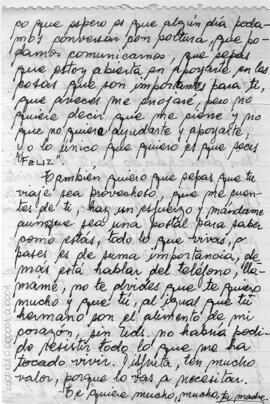 po que espero es que algún día poda-
mos conversar con postura, que po-
damos comunicarnos, que sepas
que estoy abierta en apoyarte en las
cosas que son importantes para ti,
que aveces me enojaré, pero no
quiere decir que me cierre y no
que no quiera ayudarte y apoyarte,
yo lo único que quiero es que seas
"FELIZ".
También quiero que sepas que tu
viaje sea provechoso, que me cuen-
tes de ti, haz un esfuerzo y mándame
aunque sea una postal para saber
como estás, todo lo que vivas, o
pases es de suma importancia, de-
más está hablar del teléfono, llá-
mame, no te olvides que te quiero
mucho y que tú, al igual que tu
hermano son el alimento de mi
corazón, sin uds. no habría podi-
do resistir todo lo que me ha
tocado vivir. Disfruta, ten mucho
valor, porque lo vas a necesitar.
Te quiere mucho, mucho, tu madre